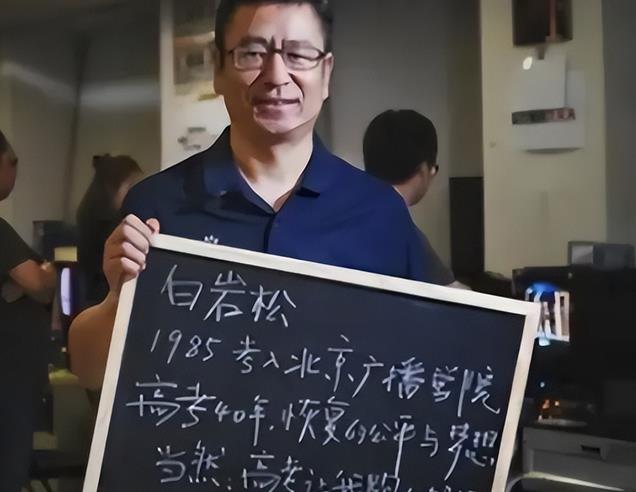 白岩松
1985考入北京广播学院
高考40年，恢复的公平与梦想
当然：高考让我